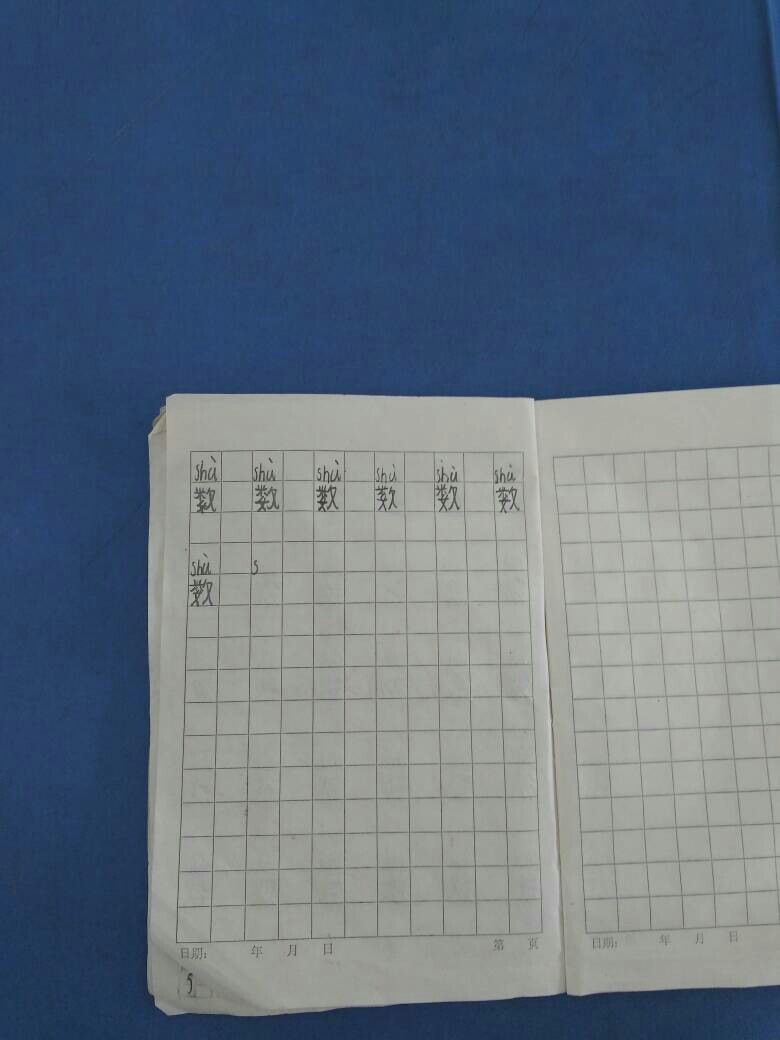 shù shù shù shù shù shù
数 数 数 数 数 数
shù s
数
日期: 年 月 日 第 页
5
日期: 年 月 日